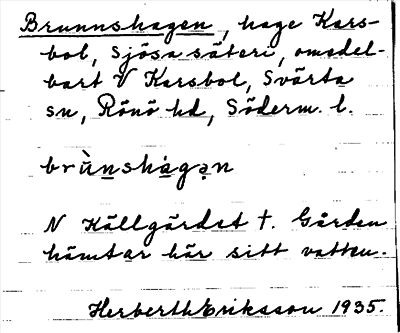 Brunnshagen, hage Kars-
bol, Sjösa säteri, omedel-
bart V Karsbol, Svärta
sn, Rönö hd, Söderm. l.
brùnshàgən
N Källgärdet †. Gården
hämtar här sitt vatten.
Herberth Eriksson 1935.